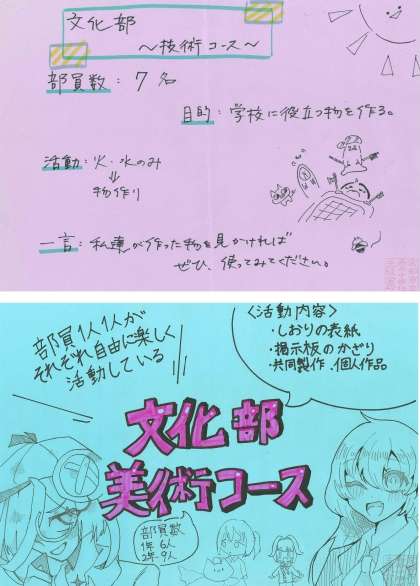 文化部
～技術コース～
部員数：7名
目的：学校に役立つ物を作る。
活動：火・水のみ
⇓
物作り
一言：私達が作った物を見かければ
ぜひ、使ってみてください。
部員1人1人が
それぞれ自由に楽しく
活動している!!
＜活動内容＞
・しおりの表紙
・掲示板のかざり
・共同製作・個人作品
文化部
美術コース
部員数
1年6人
2年9人